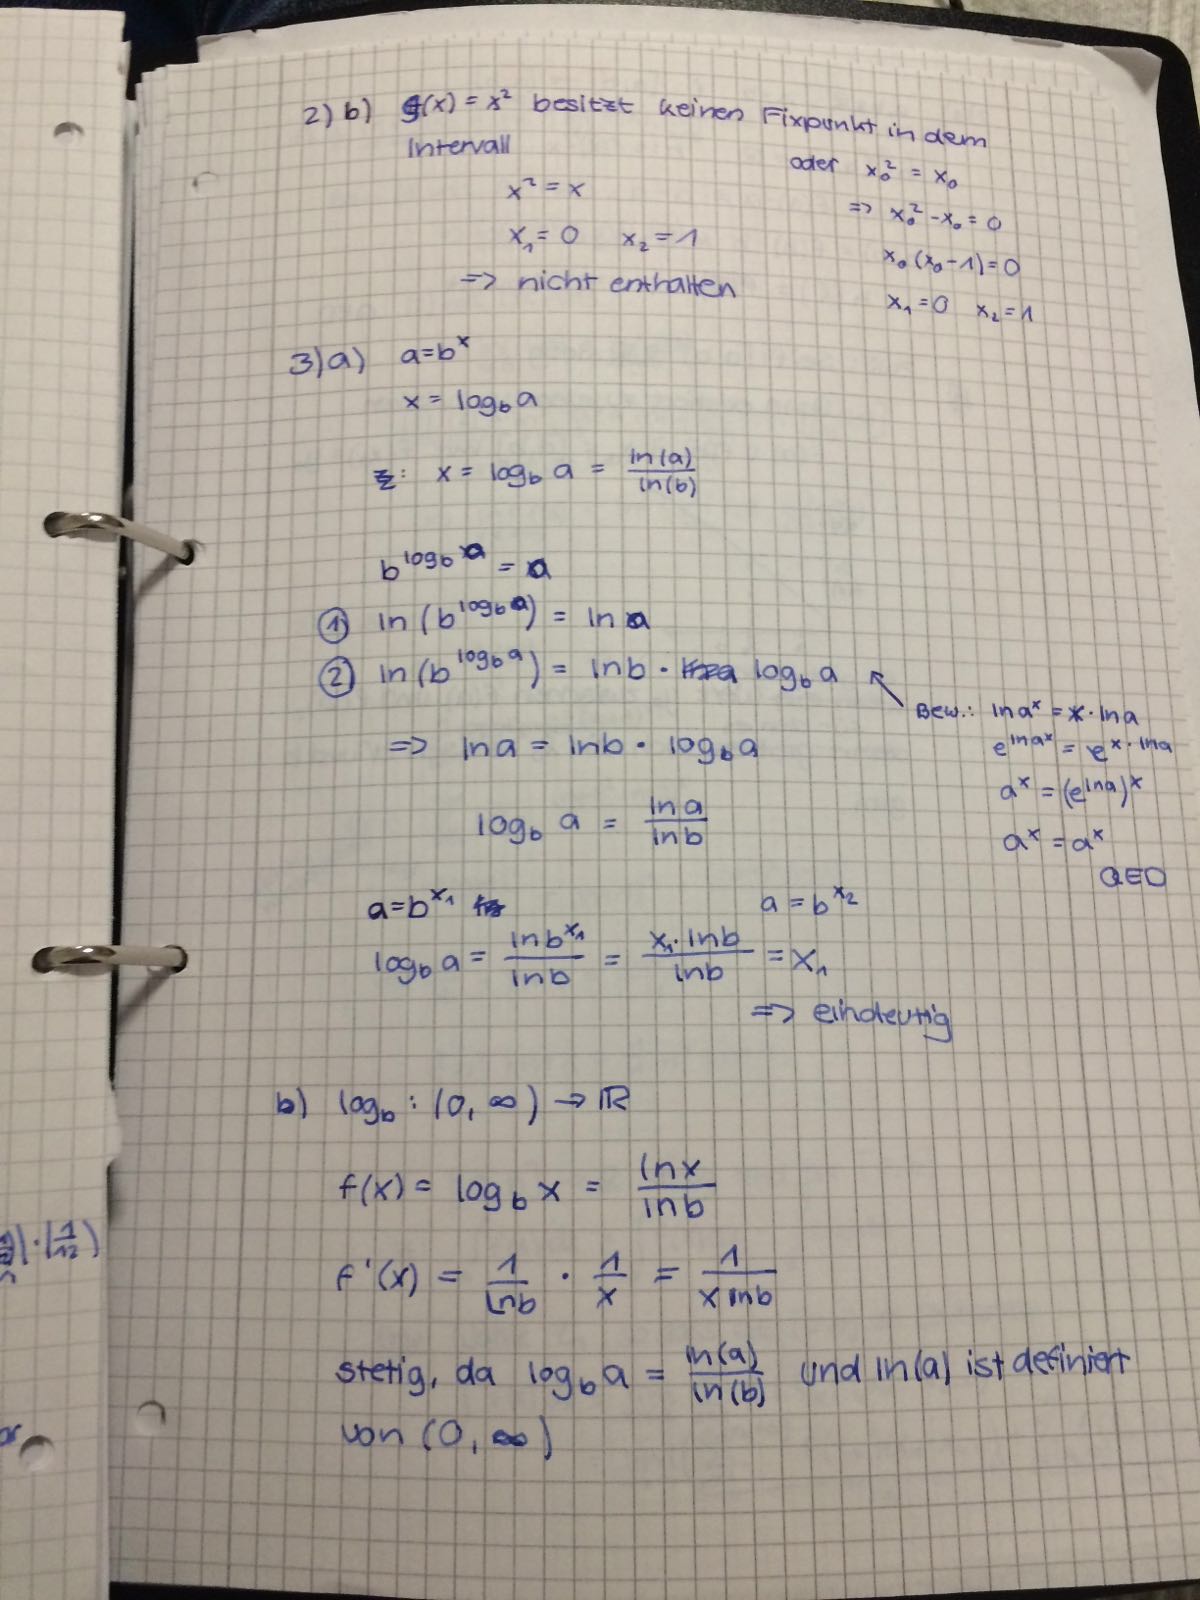 2) b) f(x) = x² besitzt keinen Fixpunkt in dem
Intervall
x² = x
x₁ = 0 x₂ = 1
=> nicht enthalten
oder x₀² = x₀
=> x₀² - x₀ = 0
x₀ (x₀ - 1) = 0
x₁ = 0 x₂ = 1
3) a) a = b^x
x = log_b a
z: x = log_b a = ln(a)/ln(b)
b^(log_b a) = a
① ln (b^(log_b a)) = ln a
② ln (b^(log_b a)) = ln b · log_b a
Bew.: ln a^x = x · ln a
e^(ln a^x) = e^(x · ln a)
a^x = (e^(ln a))^x
a^x = a^x
QED
=> ln a = ln b · log_b a
log_b a = ln a / ln b
a = b^(x₁) a = b^(x₂)
log_b a = ln b^(x₁) / ln b = x₁ · ln b / ln b = x₁
=> eindeutig
b) log_b : (0, ∞) → ℝ
f(x) = log_b x = ln x / ln b
f'(x) = 1/ln b · 1/x = 1/(x ln b)
stetig, da log_b a = ln(a)/ln(b) und ln(a) ist definiert
von (0, ∞)